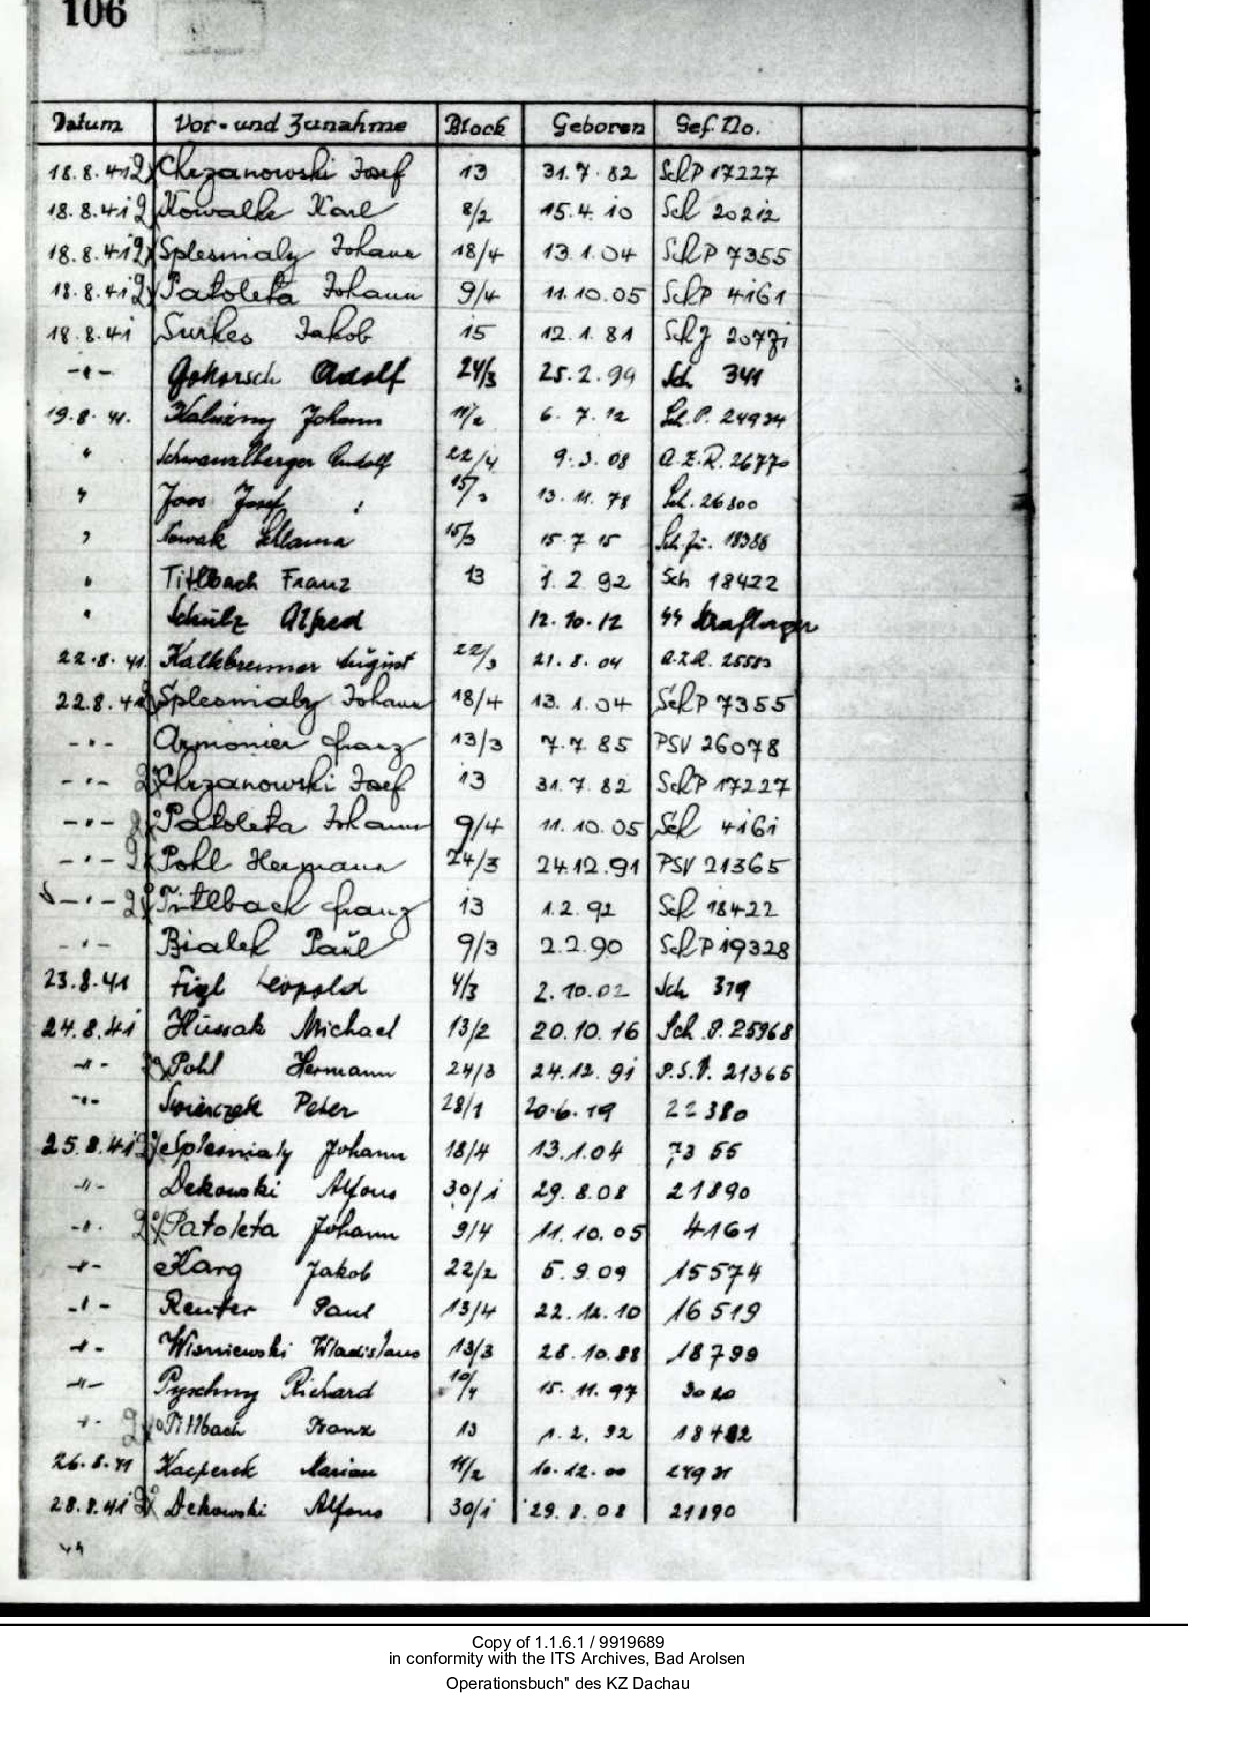 106
Datum Vor- und Zunahme Block Geboren Gef. No.
18.8.41 Chrzanowski Josef 13 31.7.82 SchP 17227
18.8.41 Kowalke Karl 8/2 15.4.10 Sch 20212
18.8.41 Splesmialy Johann 18/4 13.1.04 SchP 7355
18.8.41 Patoleta Johann 9/4 11.10.05 SchP 4161
18.8.41 Surkes Jakob 15 12.1.81 SchJ
-"- Gokorsch Adolf 24/3 25.2.99 Sch 341
19.8.41. Johann 6.7.12 Sch.P. 24934
" Schwanzlberger Rudolf 22/4 9.3.08 A.Z.R. 26770
" Joos Josef 15/3 13.11.78 Sch. 26800
" Nowak 15/3 15.7.15
" Titlbach Franz 13 1.2.92 Sch 18422
" Schülz Alfred 12.10.12 SS Straflager
22.8.41. Kalkbrenner August 22/3 21.8.04 A.Z.R.
22.8.41 Splesmialy Johann 18/4 13.1.04 SchP 7355
-"- Armonier Franz 13/3 7.7.85 PSV 26078
-"- Chrzanowski Josef 13 31.7.82 SchP 17227
-"- Patoleta Johann 9/4 11.10.05 Sch 4161
-"- Pohl Hermann 24/3 24.12.91 PSV 21365
-"- Titlbach Franz 13 1.2.92 Sch 18422
-"- Bialek Paul 9/3 2.2.90 SchP 19328
23.8.41 Figl Leopold 4/3 2.10.02 Sch 319
24.8.41 Hüssak Michael 13/2 20.10.16 Sch.P. 25968
-"- Pohl Hermann 24/3 24.12.91 P.S.V. 21365
-"- Swierczek Peter 28/1 20.6.19 22380
25.8.41 Splesmialy Johann 18/4 13.1.04 7355
-"- Dekowski Alfons 30/1 29.8.08 21890
-"- Patoleta Johann 9/4 11.10.05 4161
-"- Karg Jakob 22/2 5.9.09 15574
-"- Reuter Paul 13/4 22.12.10 16519
-"- Wisniewski Wladislaus 13/3 28.10.88 18799
-"- Pyschny Richard 10/4 15.11.97
-"- Titlbach Franz 13 1.2.92
26.8.41 Kacperek Marian 11/2 10.12.00
28.8.41 Dekowski Alfons 30/1 29.8.08 21890
Copy of 1.1.6.1 / 9919689
in conformity with the ITS Archives, Bad Arolsen
Operationsbuch" des KZ Dachau